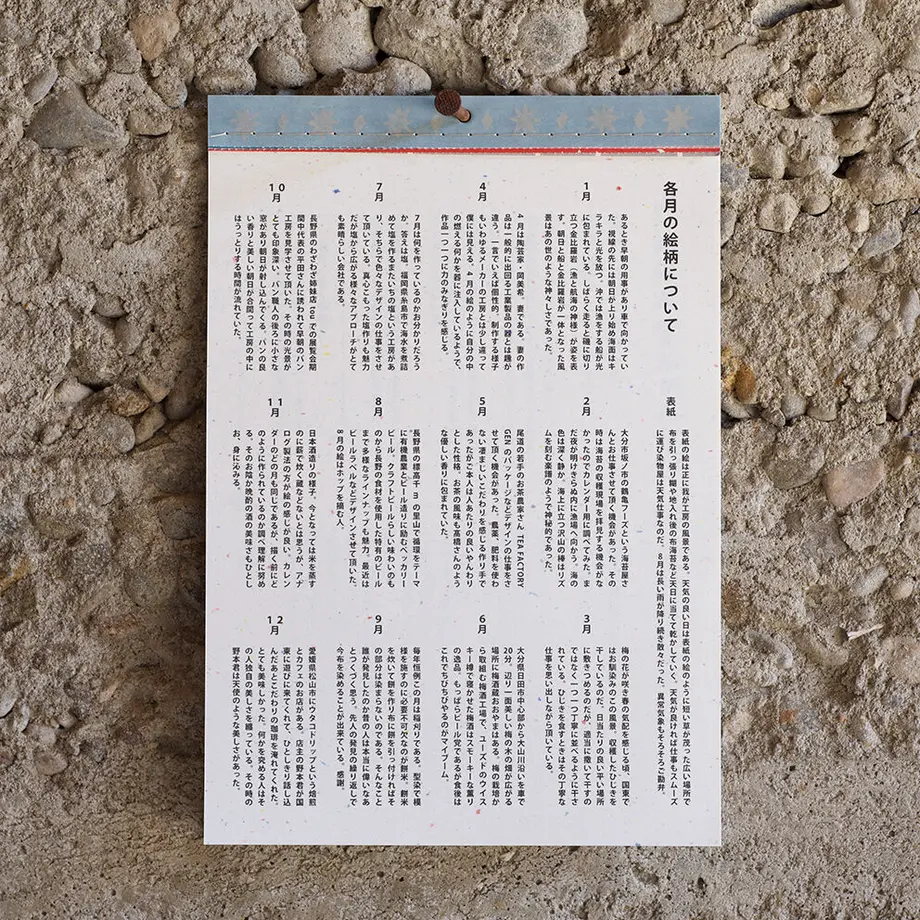 各月の絵柄について
表紙
表紙の絵は正に我が工房の風景である。天気の良い日は表紙の絵のように短い草が茂った広い場所で
布を引っ張り、糊や地入れ後の布海苔など天日に当てて乾かしていく。天気が良ければ仕事もスムーズ
に運び染物屋は天気仕事なのだ。8月は長い雨が降り続き散々だった。異常気象もそろそろご勘弁。
1月
あるとき早朝の用事があり車で向かってい
た。視線の先には朝日が上り始め海面はキ
ラキラと光を放つ。沖では漁をする船が光
に包まれている。しばらく走ると磯に切り
立つ金比羅岩（漁と航海の神様）が姿を表
す。朝日と船と金比羅岩が一体となった風
景はあの世のような神々しさであった。
2月
大分市坂ノ市の鶴亀フーズという海苔屋さ
んとお仕事させて頂く機会があった。その
時は海苔の収穫現場を拝見する機会がな
かったのでカレンダー用に調べてみた。ま
だ夜が明けきらぬ内に漁場へ向かう。海の
色は深く静か。海上に立つ沢山の棒はリズ
ムを刻む楽譜のようで神秘的であった。
3月
梅の花が咲き春の気配を感じる頃、国東で
はお馴染みのこの風景。収穫したひじきを
干しているのだ。日当たりの良い平い場所
に敷きつめるのだが、適当に撒いて干すの
ではなく一つ一つ丁寧に並べるように干さ
れている。ひじきを食すときはその丁寧な
仕事を思い出しながら頂いている。
4月
4月は陶芸家・岡美希。妻である。妻の作
品は一般的に出回る工業製品の器とは趣が
違う。一言でいえば個性的。制作する様子
もいわゆるメーカーの工房とは少し違って
僕には見える。4月の絵のように自分の中
の燃える何かを器に注入しているようで、
作品一つ一つに力のみなぎりを感じる。
5月
尾道の若手のお茶農家さん TEA FACTORY
GEN のパッケージなどデザインの仕事をさ
せて頂く機会があった。農薬、肥料を使わ
ない凄まじいこだわりを感じる作り手で
あったがご本人は人あたりの良いやんわり
とした性格。お茶の風味も高橋さんのよう
な優しい香りに包まれていた。
6月
大分県日田市中心部から大山川沿いを車で
20分。辺り一面美しい梅の木の畑が広がる
場所に梅酒蔵おおやまはある。梅の栽培か
ら取組む梅酒工場で、ユーズドのウイス
キー樽で寝かせた梅酒はスモーキーな薫り
の逸品。もっぱらビール党であるが食後は
これでちびちびやるのがマイブーム。
7月
7月は何を作っているのかお分かりだろう
か。答えは塩。福岡県糸島市で海水を煮詰
めて塩を作るまたいちの塩という工房があ
り、そちらで色々なデザインの仕事をさせ
て頂いている。真心こもった塩作りも魅力
だが塩から広がる様々なアプローチがとて
も素晴らしい会社である。
8月
長野県の標高千 m の里山で循環をテーマ
に有機農業とビール造りに励むベッカリー
ビール。クラフトビールらしい味わいのも
のから長野の食材を使用した特有のビール
まで多様なラインナップも魅力。最近は
ビールラベルなどデザインさせて頂いた。
8月の絵はホップを摘む人。
9月
毎年恒例この月は稲刈りである。型染で模
様を施すのに必要不可欠なのが餅米。餅米
を炊いて餅を作り布に餅を引っ付ければそ
の部分は染まらないのである。そんなこと
誰が発見したのか昔の人は本当に偉いなあ
とつくづく思う。先人の発見の繰り返しで
今布を染めることが出来ている。感謝。
10月
長野県のわざわざ姉妹店 tou での展覧会期
間中代表の平田さんに誘われて早朝のパン
工房を見学させて頂いた。その時の光景が
とても印象深い。パン職人の後ろに小さな
窓があり朝日が射し込んでくる。パンの良
い香りと美しい朝日が合間って工房の中に
はうっとりする時間が流れていた。
11月
日本酒造りの様子。今となっては米を蒸す
のに薪で炊く蔵などないとは思うが、アナ
ログ製法の方が絵の感じが良い。カレン
ダーのどの月も同じであるが、描く前にど
のように作られているのか調べ理解に努め
る。そのお陰か晩酌の酒の美味さもひとし
お、身に沁みる。
12月
愛媛県松山市にウタコドリップという焙煎
とカフェのお店がある。店主の野本君が国
東に遊びに来てくれて、ひとしきり話し込
んだあとこだわりの珈琲を淹れてくれた。
とても美味しかった。何かを究める人はそ
の人独自の美しさを纏っている。その時の
野本君は天使のような美しさがあった。